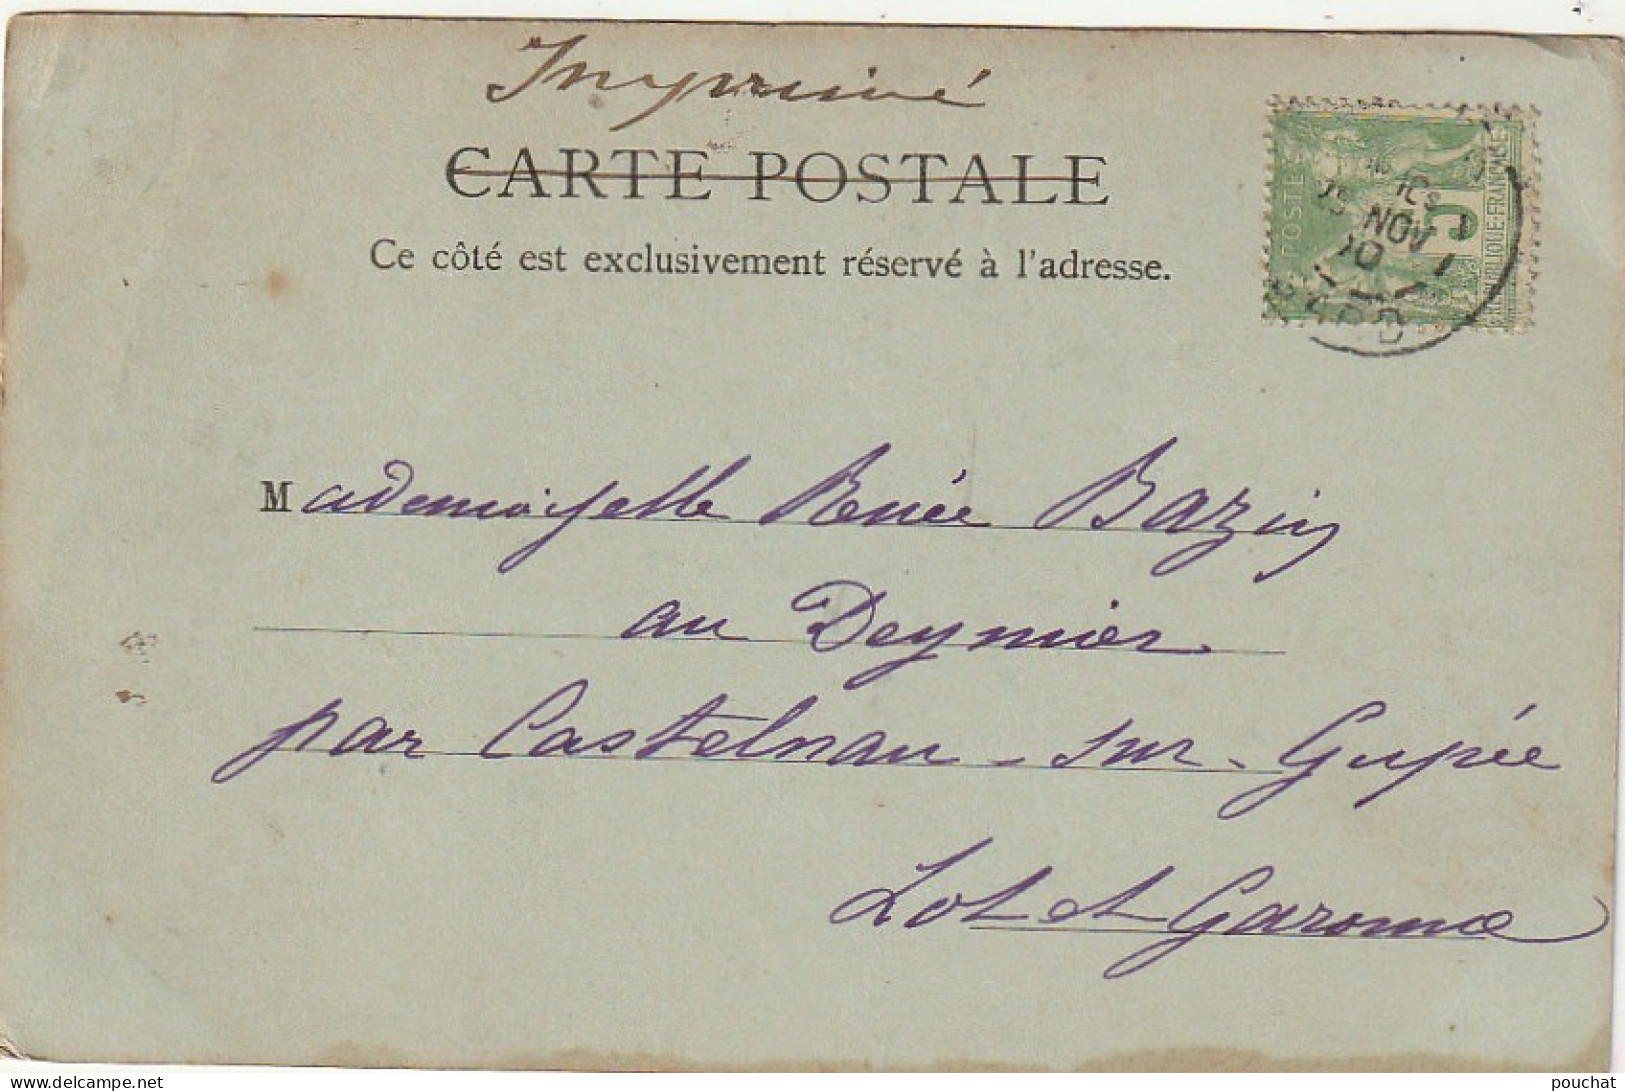 Imprimé
CARTE POSTALE
Ce côté est exclusivement réservé à l'adresse.
POSTES
5
REPUBLIQUE FRANÇAISE
25 NOV
01
GARD
Mademoiselle Renée Bazin
au Deymier
par Castelnau-sur-Gupie
Lot et Garonne
delcampe.net
pouchat